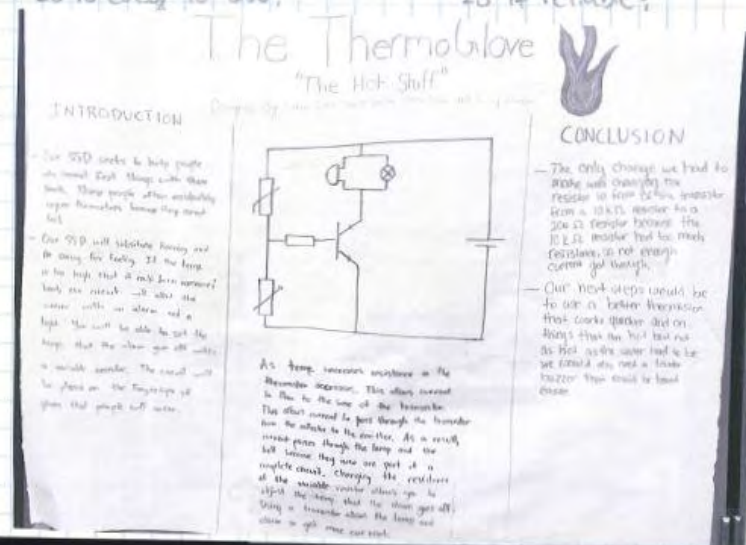 The ThermoGlove
"The Hot Stuff"
INTRODUCTION
- Our SSD seeks to help people
who cannot feel things with their
hands. These people often accidentally
injure themselves because they cannot
feel.
- Our SSD will substitute hearing and
for feeling. If the temp
is too high that it could burn someone's
hand, the circuit will alert the
with an alarm and a
light. You will be able to set the
temp. that the alarm goes off
a variable resistor. The circuit will
be placed on the fingertips of
gloves that people will wear.
As temp increases resistance in the
thermistor decreases. This allows current
to flow to the base of the transistor.
This allows current to pass through the transistor
from the collector to the emitter. As a result,
current passes through the lamp and the
bell because they now are part of a
complete circuit. Changing the resistance
of the variable resistor allows you to
adjust the temp. that the alarm goes off.
Using a transistor allows the lamp and
alarm to get more current.
CONCLUSION
- The only change we had to
make was changing the
resistor
from a 10 kΩ resistor to a
200 Ω resistor because the
10 kΩ resistor had too much
resistance, so not enough
current got through.
- Our next steps would be
to use a better thermistor
that works quicker and on
things that are hot but not
as hot as the water had to be
we would also need a louder
buzzer that could be heard
easier